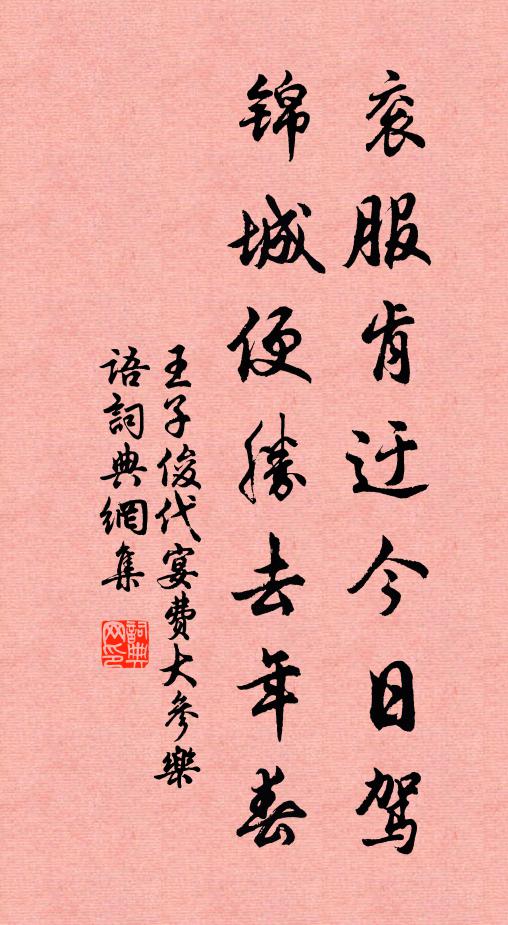 衮服肯迂今日驾
锦城便胜去年春
王子俊代宴费大参樂
语詞典網集
詞典网印